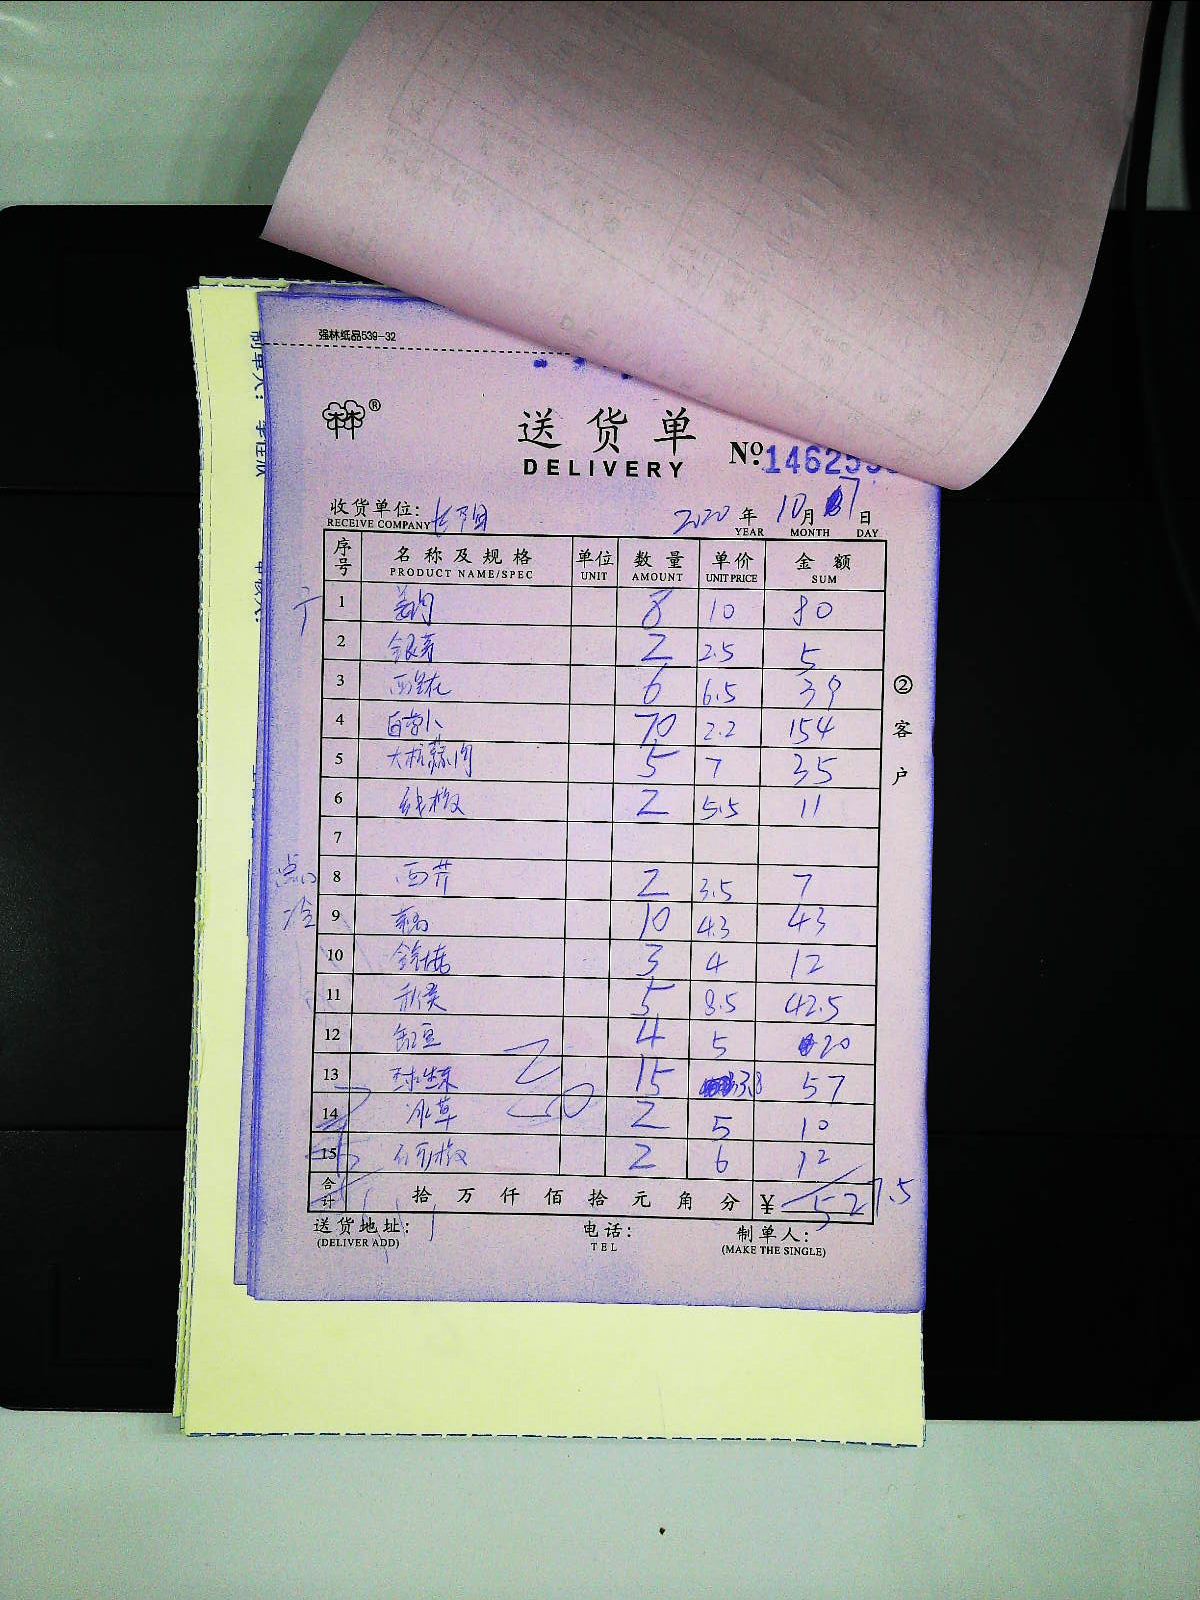 强林纸品539-32
®
送货单
DELIVERY
№:14625
收货单位:
RECEIVE COMPANY
2020 年 10 月 7 日
YEAR MONTH DAY
序号 名称及规格 单位 数量 单价 金额
PRODUCT NAME/SPEC UNIT AMOUNT UNIT PRICE SUM
1 姜肉 8 10 80
2 银芽 2 2.5 5
3 西兰花 6 6.5 39
4 白萝卜 70 2.2 154
5 大杭 肉 5 7 35
6 椒 2 5.5 11
7
8 西芹 2 3.5 7
9 10 4.3 43
10 3 4 12
11 5 8.5 42.5
12 缸豆 4 5 20
13 球生菜 15 3.8 57
14 冰草 2 5 10
15 椒 2 6 12
合计 拾 万 仟 佰 拾 元 角 分 ¥ 527.5
送货地址: 电话: 制单人:
(DELIVER ADD) TEL (MAKE THE SINGLE)
②客户
制单人: